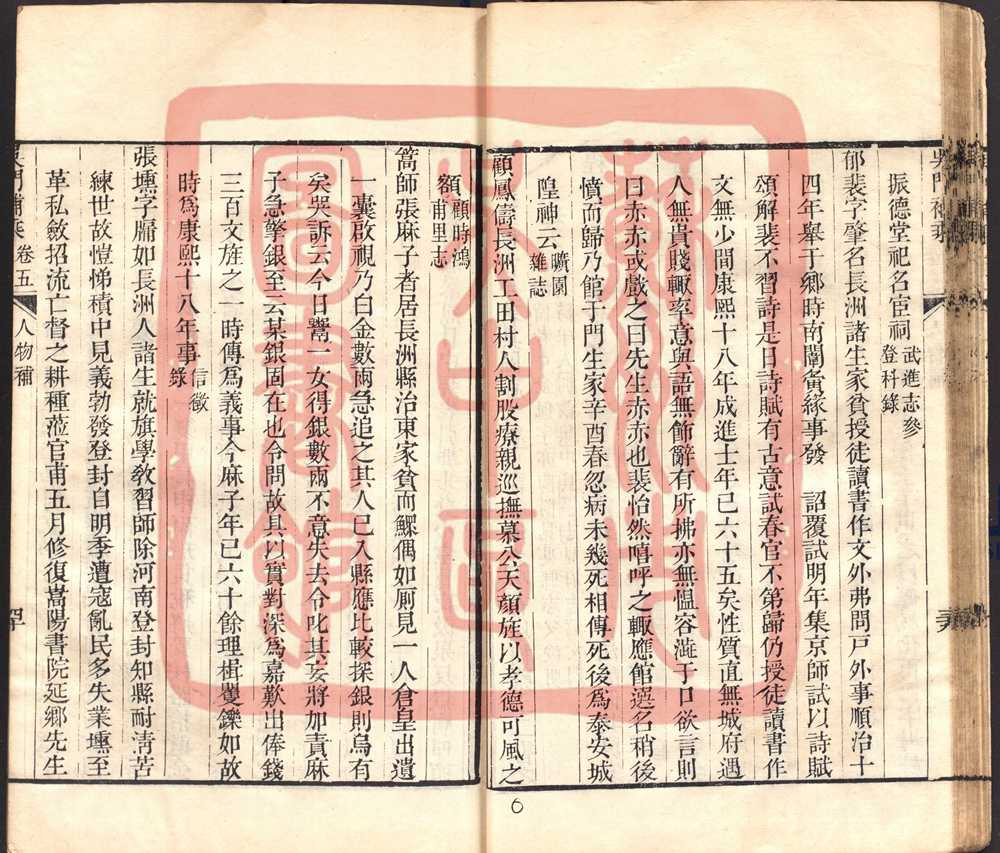 振德堂祀名宦祠武進志參登科錄
郁裴字肇名長洲諸生家貧授徒讀書作文外弗問戸外事順治十
四年舉于鄉時南闈夤緣事發 詔覆試明年集京師試以詩賦
頌解裴不習詩是日詩賦有古意試春官不第歸仍授徒讀書作
文無少間康熙十八年成進士年已六十五矣性質直無城府遇
人無貴賤輒率意與語無飾辭有所拂亦無慍容澁于口欲言則
曰赤赤或戲之曰先生赤赤也裴怡然嘻呼之輒應館選名稍後
憤而歸乃館于門生家辛酉春忽病未幾死相傳死後爲泰安城
隍神云曠園雜誌
顧鳳儔長洲工田村人割股療親巡撫慕公天顏旌以孝德可風之
額顧時鴻甫里志
篙師張麻子者居長洲縣治東家貧而鰥偶如厠見一人倉皇出遺
一囊啟視乃白金數兩急追之其人已入縣應比較探銀則烏有
矣哭訴云今日鬻一女得銀數兩不意失去令叱其妄將加責麻
子急擎銀至云某銀固在也令問故具以實對深爲嘉歎出俸錢
三百文旌之一時傳爲義事今麻子年已六十餘理楫矍鑠如故
時爲康熙十八年事信徵錄
張壎字牗如長洲人諸生就旗學敎習師除河南登封知縣耐淸苦
練世故愷悌積中見義勃發登封自明季遭寇亂民多失業壎至
革私斂招流亡督之耕種涖官甫五月修復嵩陽書院延鄉先生
卷五
人物補
6